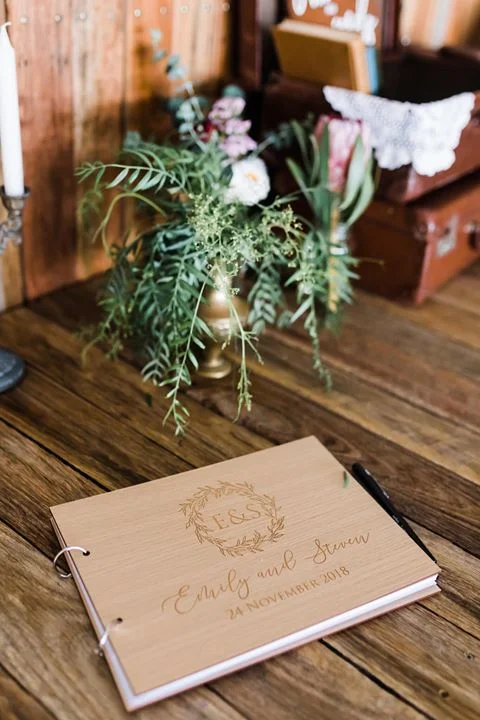 E&S
Emily and Steven
24 November 2018